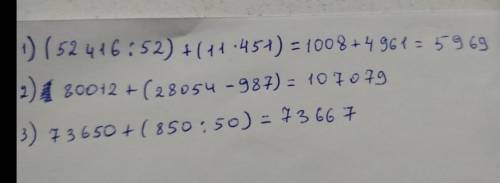 1) (52416:52)+(11·451)=1008+4961=5969
2) 80012+(28054-987)=107079
3) 73650+(850:50)=73667